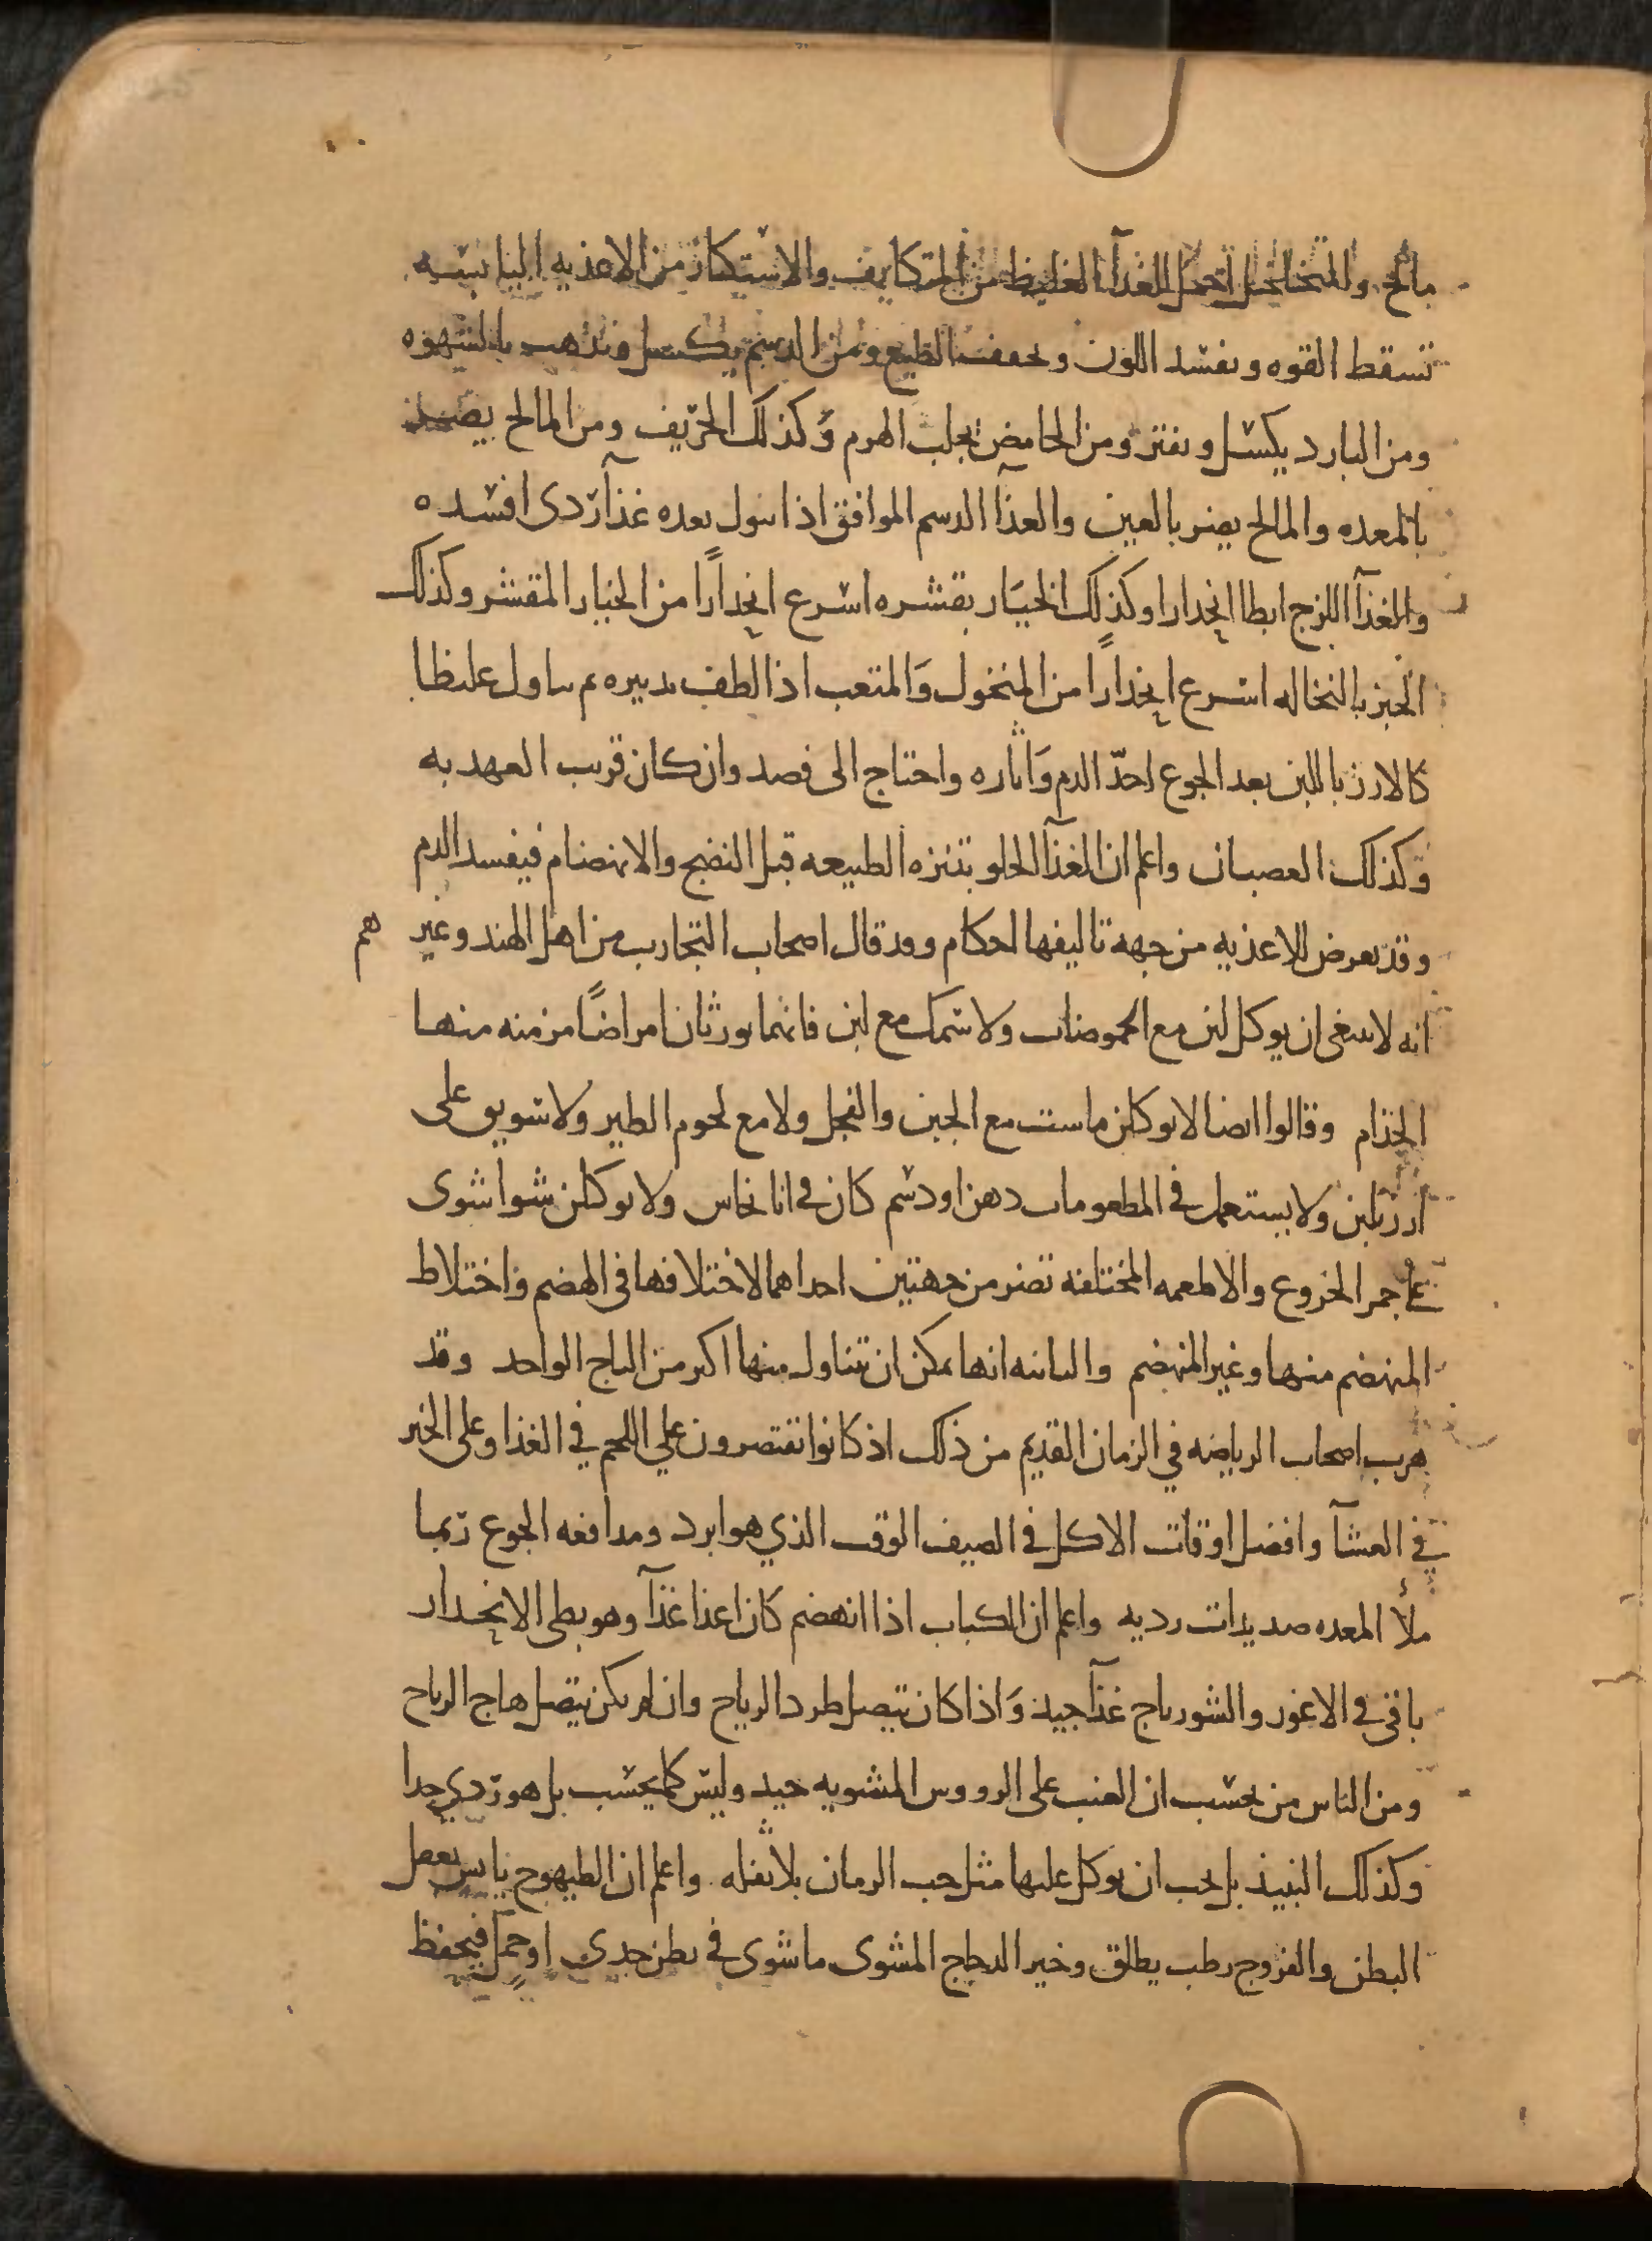 مالح والمتخلخل احمل للغذآ الغليظ من المتكاثف والاستكثار من الاغذيه اليابسه
تسقط القوه ويفسد اللون ويجفف الطبع ومن الدسم يكسل ويذهب بالشهوه
ومن البارد يكسل ويفتر ومن الحامض يجلب الهرم وكذلك الحريف ومن المالح يضر
بالمعده والمالح يضر بالعين والغذآ الدسم الموافق اذا تنوول بعده غذآ ردى افسده
والغذآ اللزج ابطا انحدارا وكذلك الخيار بقشره اسرع انحدارًا من الخيار المقشر وكذلك
الخبز بالنخاله اسرع انحدارًا من المنخول والمتعب اذا لطف تدبيره ثم تناول غليظا
كالارز باللبن بعد الجوع احدّ الدم وَاثاره واحتاج الى فصد وان كان قريب العهد به
وكذلك الغضبان واعلم ان الغذآ الحلو تبتزه الطبيعه قبل النضج والانهضام فيفسد الدم
وقد يعرض للاغذيه من جهه تاليفها احكام وقد قال اصحاب التجارب من اهل الهند وغيرهم
انه لا ينبغى ان يوكل لبن مع الحموضات ولا سمك مع لبن فانهما يورثان امراضًا مزمنه منها
الجذام وقالوا ايضا لا يوكلن ماست مع الجبن والفجل ولا مع لحوم الطير ولا سويق على
ارز بلبن ولا يستعمل في المطعومات دهن او دسم كان في انا نحاس ولا يوكلن شوا شوى
على جمر الخروع والاطعمه المختلفه تضر من جهتين احداهما لاختلافها فى الهضم واختلاط
المنهضم منها وغير المنهضم والثانيه انها يمكن ان تتناول منها اكثر من الباج الواحد وقد
هرب اصحاب الرياضه في الزمان القديم من ذلك اذ كانوا يقتصرون علي اللحم في الغذا وعلى الخبز
في العشآ وافضل اوقات الاكل في الصيف الوقت الذي هو ابرد ومدافعه الجوع ربما
ملأ المعده صديدات رديه واعلم ان الكباب اذا انهضم كان اغذا غذآ وهو بطى الانحدار
باقى في الاعور والشورباج غذآ جيد وَاذا كان ببصل طرد الرياح وان لم يكن ببصل هاج الرياح
ومن الناس من يحسب ان العنب على الرووس المشويه جيد وليس كما يحسب بل هو ردي جدا
وكذلك النبيذ بل يجب ان يوكل عليها مثل حب الرمان بلا ثفله واعلم ان الطيهوج يابس يعقل
البطن والفروج رطب يطلق وخير الدجاج المشوى ما شوى في بطن جدى او حمل فيحفظ